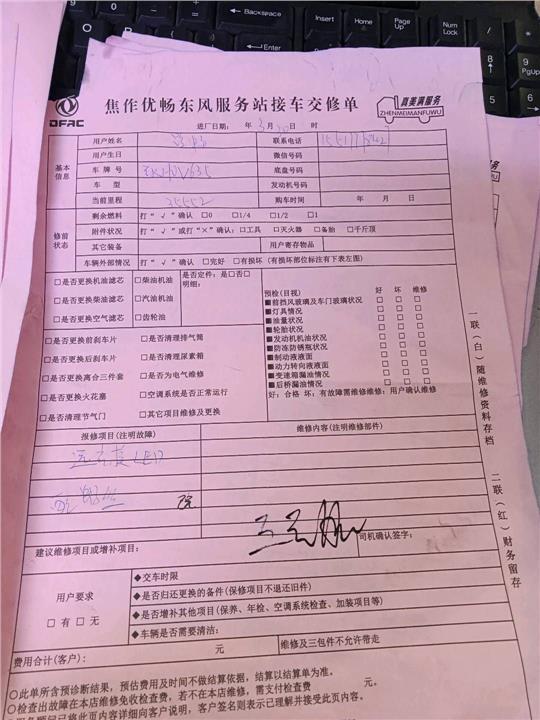 Backspace
Enter
Insert
Home
Page Up
Num Lock
Delete
End
9 PgUp
DFAC
焦作优畅东风服务站接车交修单
真美满服务
ZHENMEIMANFUWU
进厂日期： 年 3月 日 时
基本信息
用户姓名
联系电话
用户生日
微信号码
车 牌 号
底盘号码
车 型
发动机号码
当前里程 35552
购车时间 年 月 日
修前状态
剩余燃料 打“√”确认 □0 □1/4 □1/2 □1
附件状况 打“√”或打“×”确认：□工具 □灭火器 □备胎 □千斤顶
其它装备
用户寄存物品
车辆外部情况 打“√”确认 □完好 □有损坏（有损坏部位标注有下表左图）
□是否更换机油滤芯 □柴油机油
□是否更换柴油滤芯 □汽油机油
□是否更换空气滤芯 □齿轮油
是否定件：是□否□
明细：
□是否更换前刹车片 □是否清理排气筒
□是否更换后刹车片 □是否清理尿素箱
□是否更换离合三件套 □是否为电气维修
□是否更换火花塞 □空调系统是否正常运行
□是否清理节气门 □其它项目维修及更换
预检(目视) 好 坏 维修
■前挡风玻璃及车门玻璃状况 □ □ □
■灯具情况 □ □ □
■油量状况 □ □ □
■轮胎状况 □ □ □
■发动机机油状况 □ □ □
■防冻防锈瓶状况 □ □ □
■制动液液面 □ □ □
■动力转向液液面 □ □ □
■变速箱漏油情况 □ □ □
■后桥漏油情况 □ □ □
好：合格 坏：有故障需维修维修：用户确认维修
报修项目(注明故障)
维修内容(注明维修部件)
LED
院
建议维修项目或增补项目：
司机确认签字：
用户要求
□有 □无
◆交车时限
◆是否归还更换的备件(保修项目不退还旧件)
◆是否增补其他项目(保养、年检、空调系统检查、加装项目等)
◆车辆是否需要清洁：
费用合计(客户)： 元
维修及三包件不允许带走
○此单所含预诊断结果，预估费用及时间不做结算依据，结算以结算单为准。
○检查出故障在本店维修免收检查费，若不在本店维修，需支付检查费 元。
一联（白）随维修资料存档
二联（红）财务留存